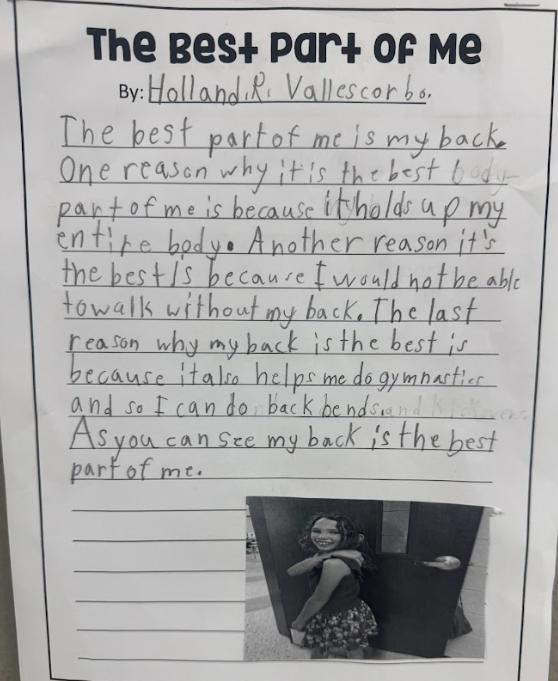 The Best Part of Me
By: Holland.R. Vallescorbo.
The best part of me is my back.
One reason why it is the best body
part of me is because it holds up my
entire body. Another reason it's
the best is because I would not be able
to walk without my back. The last
reason why my back is the best is
because it also helps me do gymnastics
and so I can do back bends. and
As you can see my back is the best
part of me.